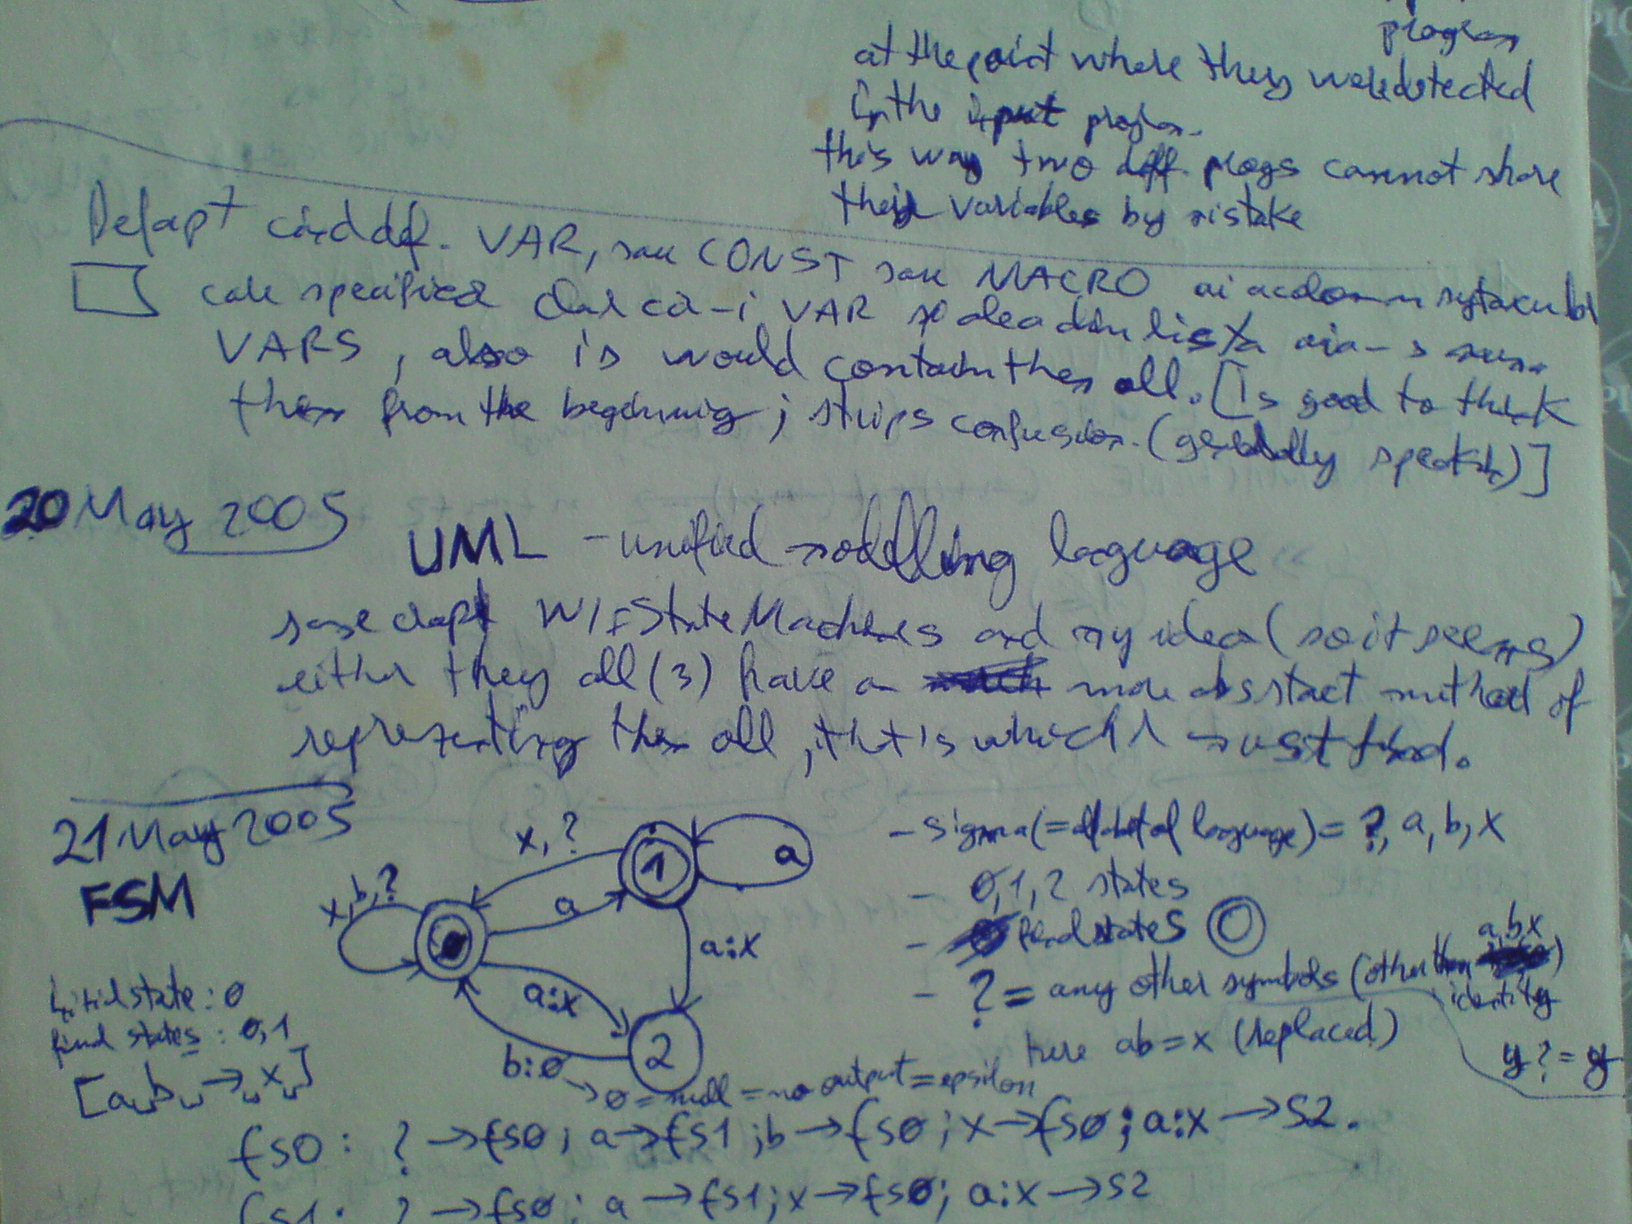 program
at the point where they were detected
in the input program.
this way two diff. progs cannot share
their variables by mistake
Defapt cind def. VAR, sau CONST sau MACRO ai acelasi
care specifica doar ca-i VAR si deci din lista
VARS, also is would contain them all. [Is good to think
them from the beginning; strips confusion. (globally speaking)]
20 May 2005
UML - unified modelling language
same W/ F State Machines and my idea (so it seems)
either they all (3) have an more abstract method of
representing them all, that is which I must find.
21 May 2005
FSM
x, ?
1
a
a
x, b, ?
a:x
a:x
2
b:0
→ 0 = null = no output = epsilon
- sigma (= alphabet of language) = ?, a, b, x
- 0, 1, 2 states
- final states
- ? = any other symbols (other than a, b, x)
identity
here ab = x (replaced)
y? = y
initial state: 0
final states: 0, 1
[a b → x]
fs0: ? → fs0; a → fs1; b → fs0; x → fs0; a:x → s2.
fs1: ? → fs0; a → fs1; x → fs0; a:x → s2